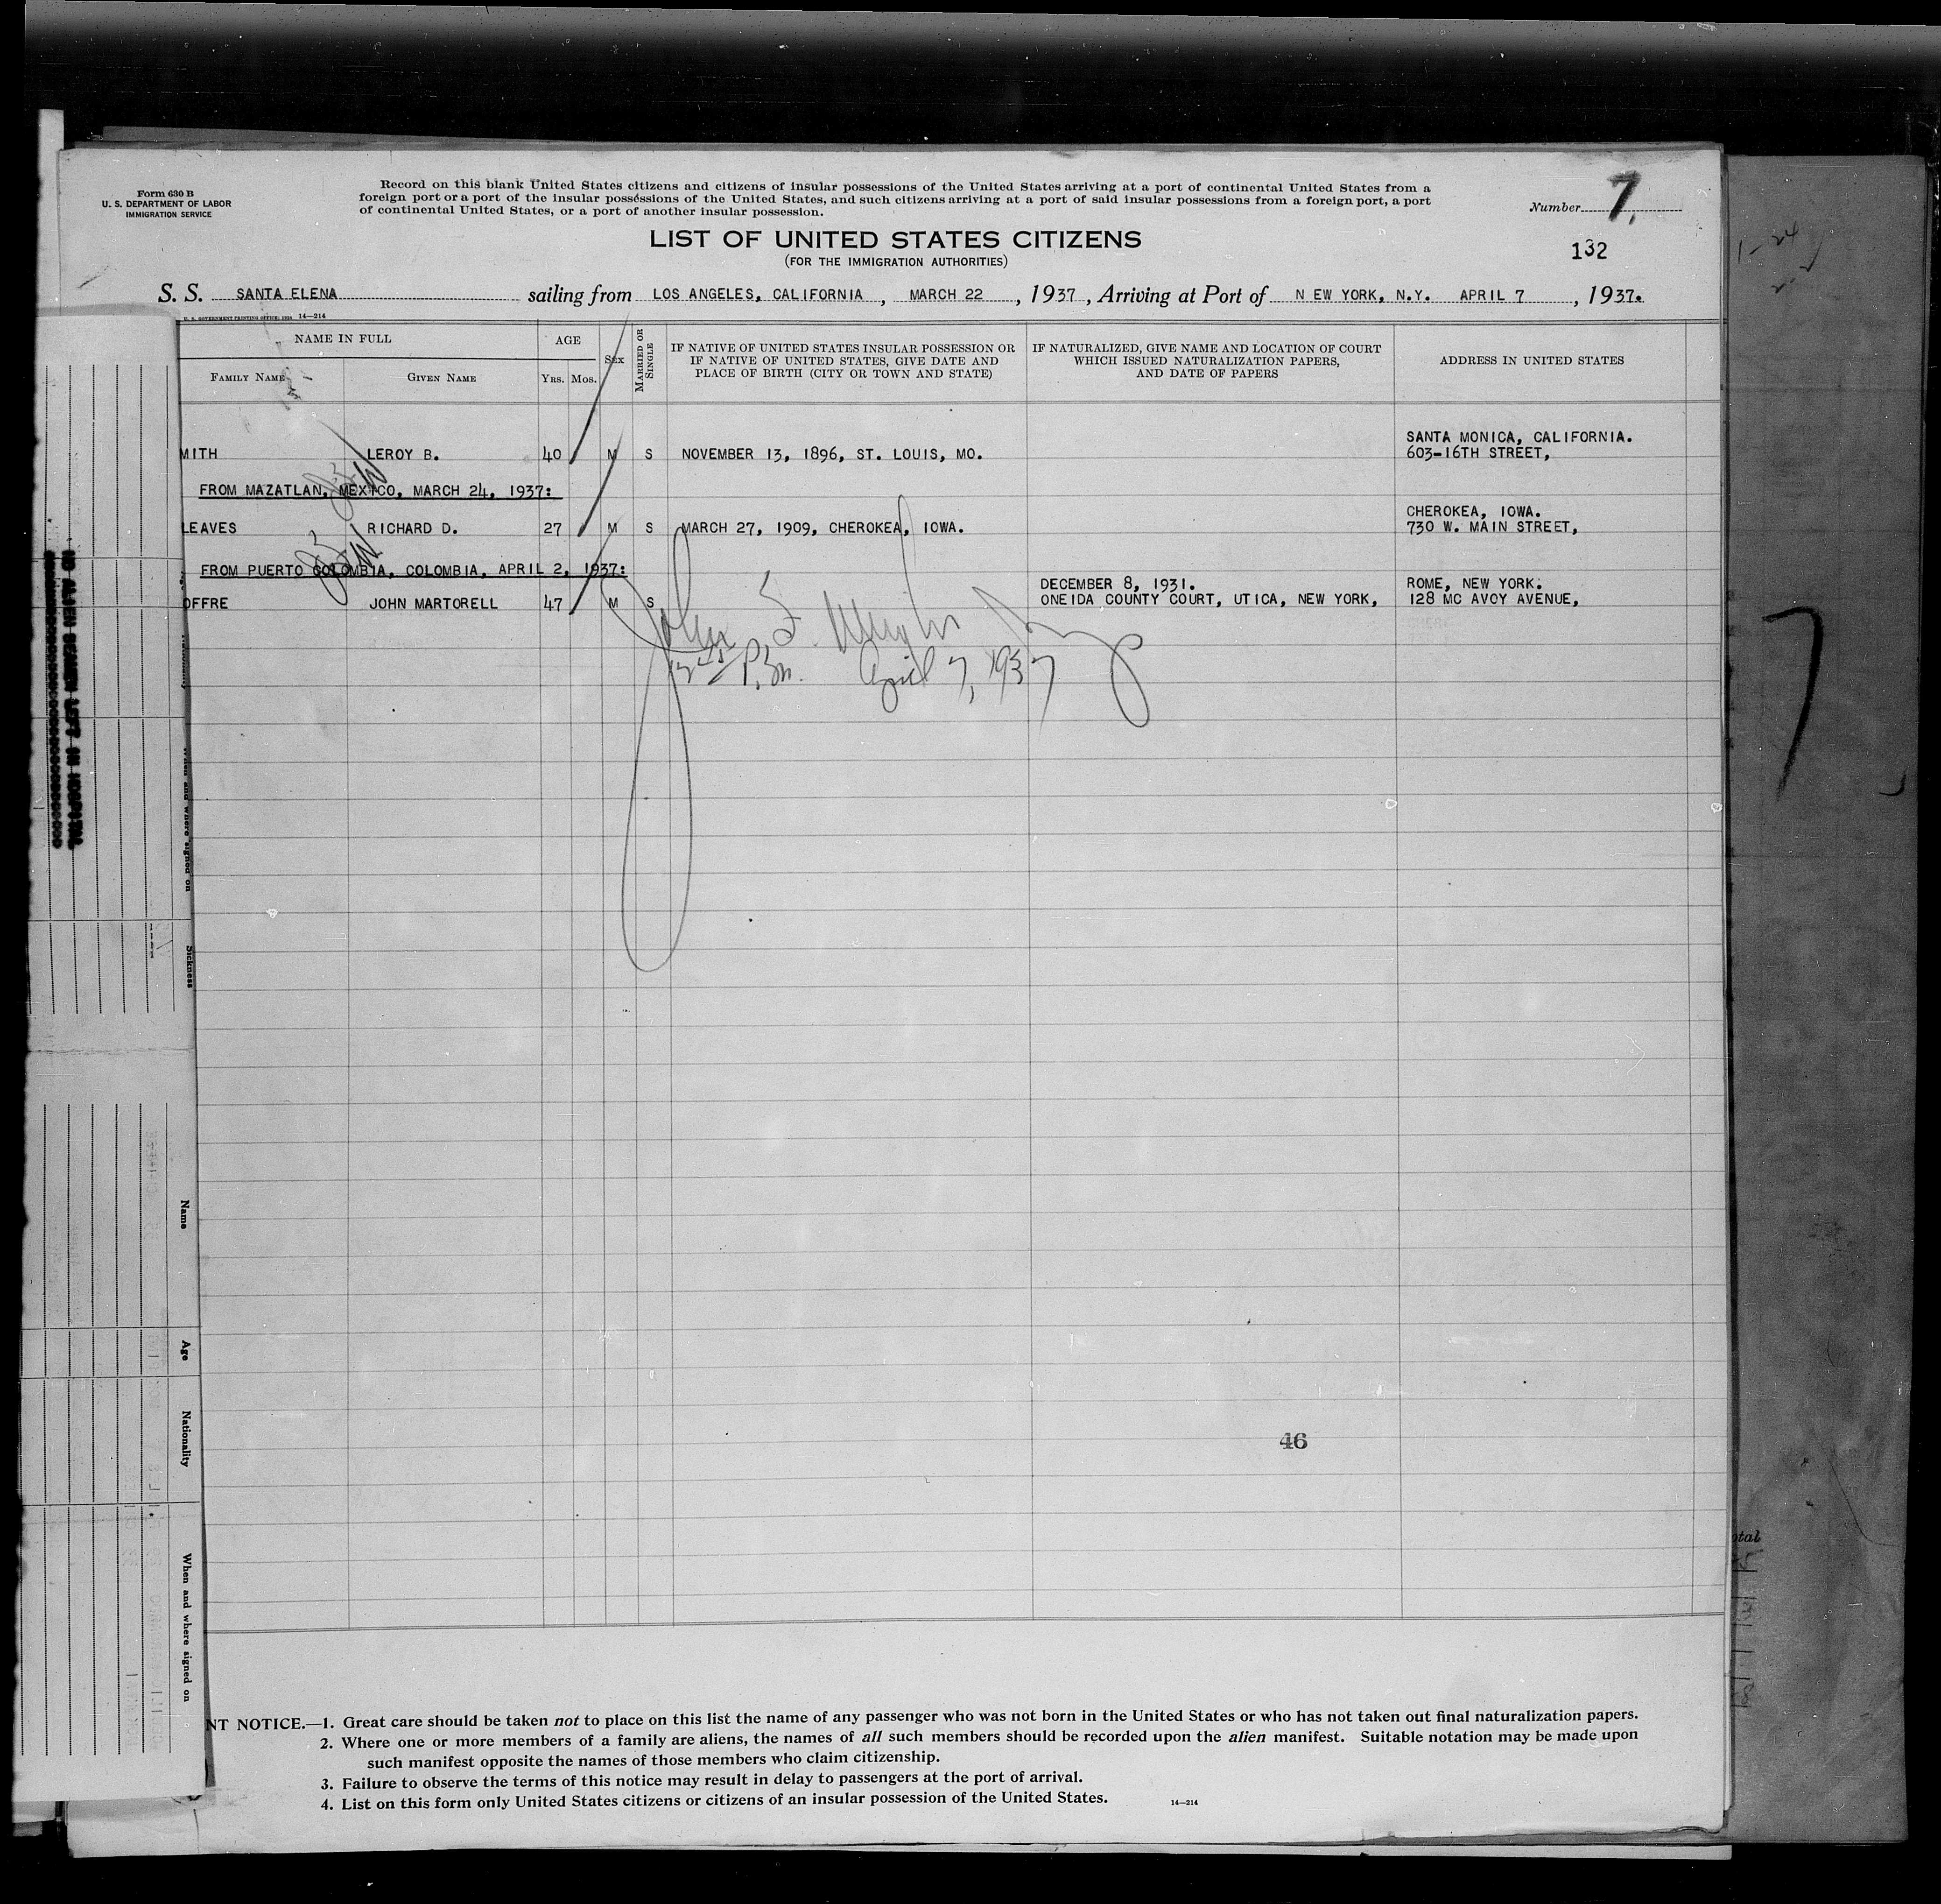 Form 630 B
U. S. DEPARTMENT OF LABOR
IMMIGRATION SERVICE
Record on this blank United States citizens and citizens of insular possessions of the United States arriving at a port of continental United States from a
foreign port or a port of the insular possessions of the United States, and such citizens arriving at a port of said insular possessions from a foreign port, a port
of continental United States, or a port of another insular possession.
Number 7.
LIST OF UNITED STATES CITIZENS
(FOR THE IMMIGRATION AUTHORITIES)
132
S. S. SANTA ELENA sailing from LOS ANGELES, CALIFORNIA, MARCH 22, 1937, Arriving at Port of N EW YORK, N.Y. APRIL 7, 1937.
U. S. GOVERNMENT PRINTING OFFICE: 14—214
NAME IN FULL
FAMILY NAME
GIVEN NAME
AGE
Yrs. Mos.
Sex
MARRIED OR SINGLE
IF NATIVE OF UNITED STATES INSULAR POSSESSION OR
IF NATIVE OF UNITED STATES, GIVE DATE AND
PLACE OF BIRTH (CITY OR TOWN AND STATE)
IF NATURALIZED, GIVE NAME AND LOCATION OF COURT
WHICH ISSUED NATURALIZATION PAPERS,
AND DATE OF PAPERS
ADDRESS IN UNITED STATES
SANTA MONICA, CALIFORNIA.
MITH LEROY B. 40 M S NOVEMBER 13, 1896, ST. LOUIS, MO. 603-16TH STREET,
FROM MAZATLAN, MEXICO, MARCH 24, 1937:
CHEROKEA, IOWA.
LEAVES RICHARD D. 27 M S MARCH 27, 1909, CHEROKEA, IOWA. 730 W. MAIN STREET,
FROM PUERTO COLOMBIA, COLOMBIA, APRIL 2, 1937:
DECEMBER 8, 1931. ROME, NEW YORK.
OFFRE JOHN MARTORELL 47 M S ONEIDA COUNTY COURT, UTICA, NEW YORK, 128 MC AVOY AVENUE,
John
P.M. April 7, 1937
7
NO ALIEN SEAMEN LEFT IN HOSPITAL
When and where signed on
Sickness
Name
Age
Nationality
When and where signed on
46
otal
NT NOTICE.—1. Great care should be taken not to place on this list the name of any passenger who was not born in the United States or who has not taken out final naturalization papers.
2. Where one or more members of a family are aliens, the names of all such members should be recorded upon the alien manifest. Suitable notation may be made upon
such manifest opposite the names of those members who claim citizenship.
3. Failure to observe the terms of this notice may result in delay to passengers at the port of arrival.
4. List on this form only United States citizens or citizens of an insular possession of the United States.
14—214